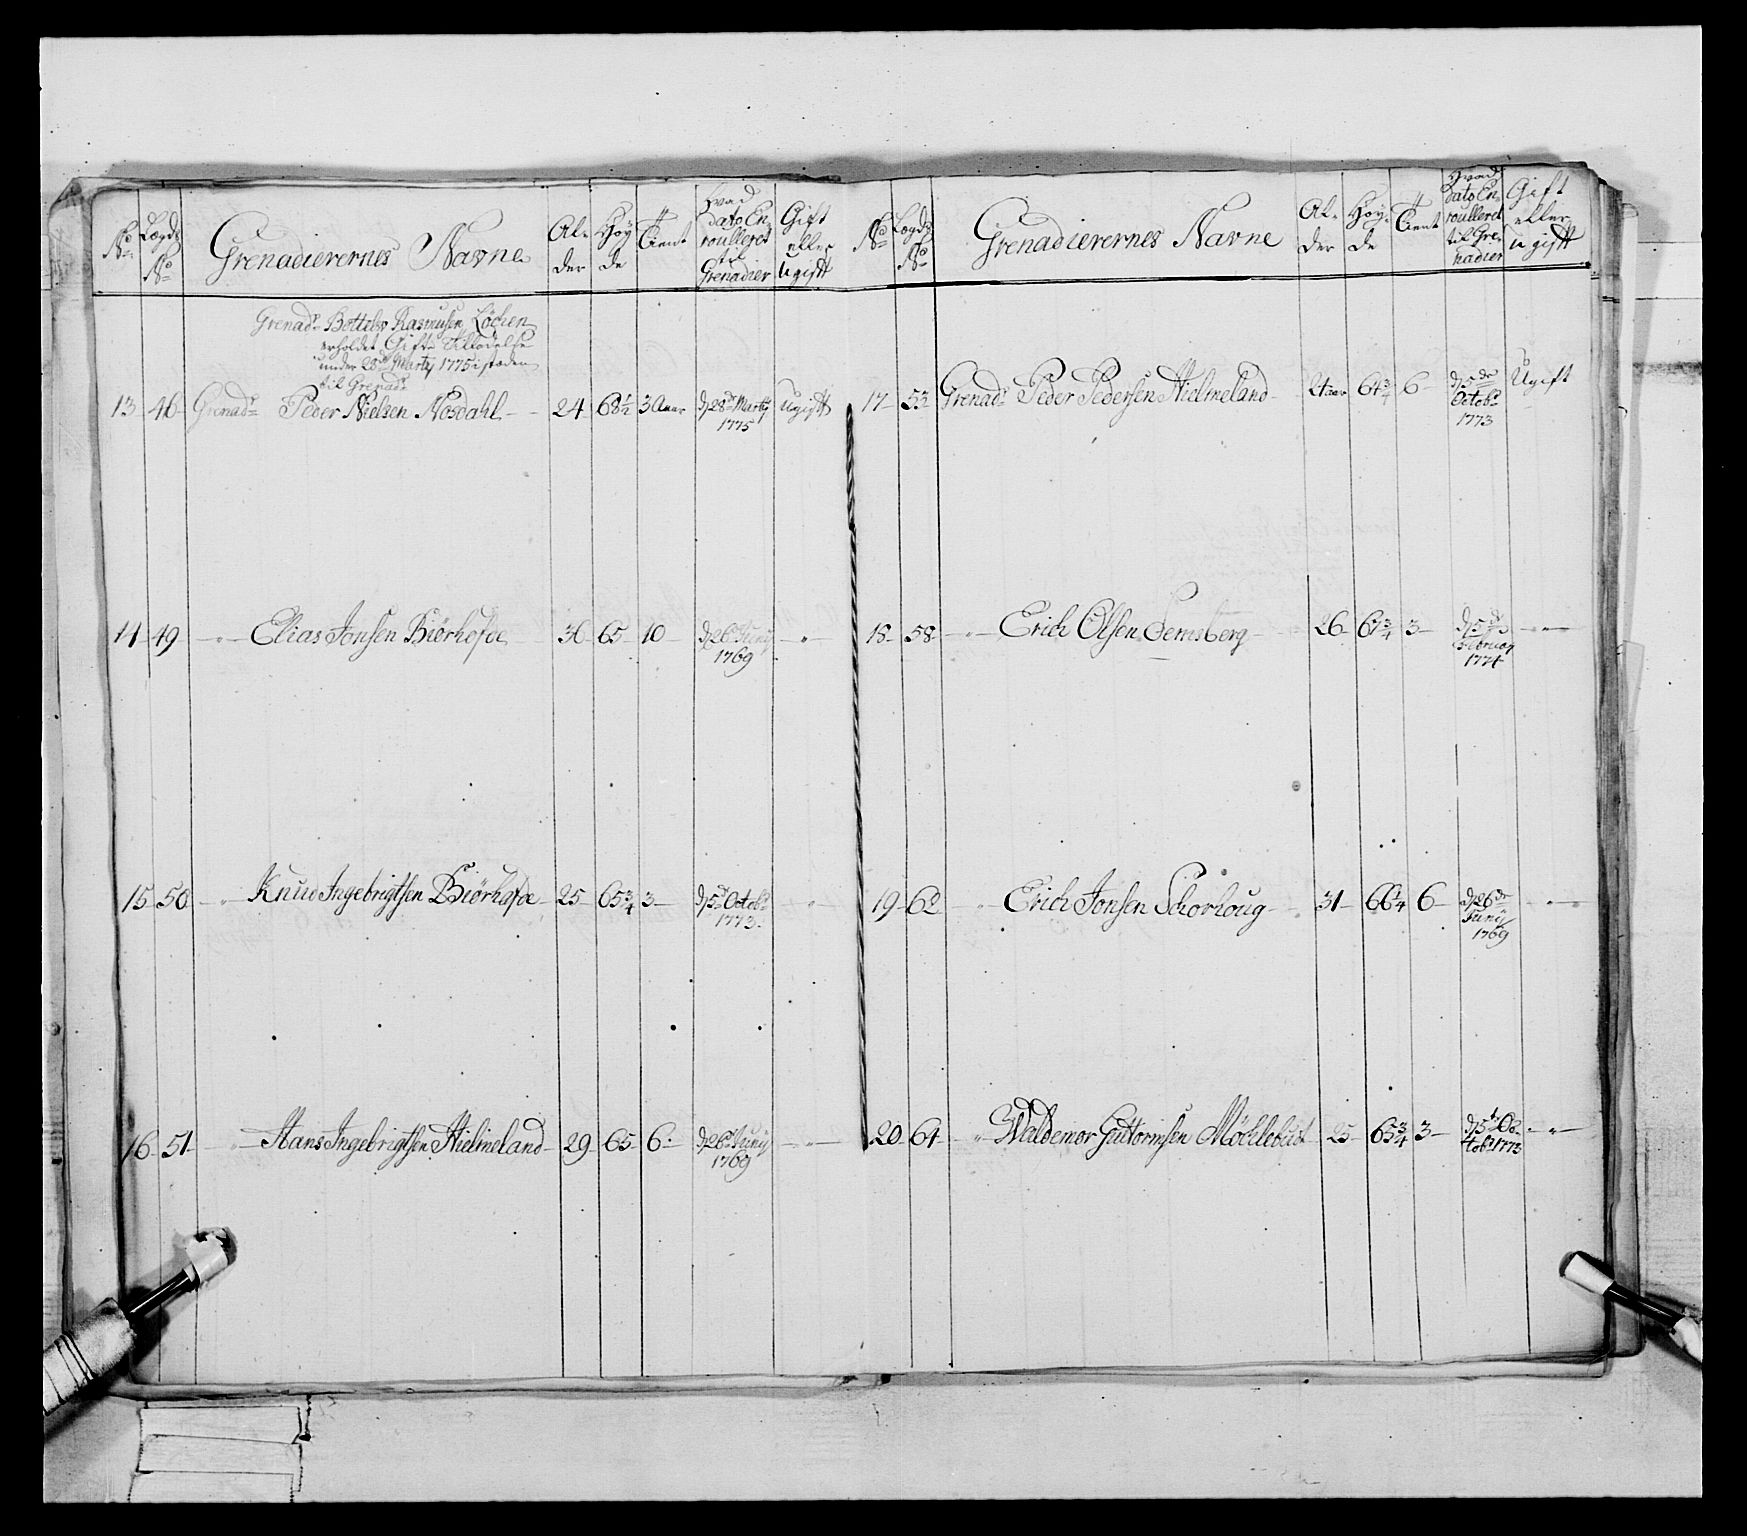 No Lægds No Grenadierernes Navne Al- der Høy- de Tient Hvad dato En- roulleret til Grenadier Gift eller ugift
Grenadr Bottelv Rasmusen Løchen
erholdet Gifte Tilladelse
under 28de Marty 1775 i steden
til Grenadr
13 46 Grenadr Peder Nielsen Nosdahl 24 68½ 3 Aar d 28 Marty 1775 Ugift
14 49 " Elias Jonsen Biørhofde 36 65 10 d 26 Juny 1769 "
15 50 " Knud Ingebrigtsen Biørhofde 25 65¾ 3 d 5 Octobr 1773 "
16 51 " Hans Ingebrigtsen Hielmeland 29 65 6 d 26 Juny 1769 "
No Lægds No Grenadierernes Navne Al- der Høy- de Tient Hvad dato En- roulleret til Gre- nadier Gift eller ugift
17 53 Grenadr Peder Pedersen Hielmeland 24 aar 64¾ 6 d 5de Octobr 1773 Ugift
18 58 " Erich Olsen Semsberg 26 67¾ 3 d 5de Februar 1774 "
19 62 " Erich Jonsen Schorhoug 31 66¼ 6 d 26de Juny 1769 "
20 64 " Waldemor Guttormsen Möchlebust 25 65¾ 3 d 5te Oc- tobr 1773 "